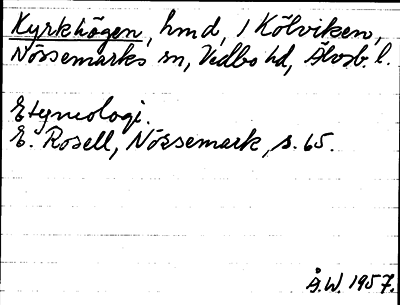 Kyrkhögen, hmd, 1 Kölviken,
Nössemarks sn, Vedbo hd, Älvsb. l.
Etymologi.
E. Rosell, Nössemark, s. 65.
Å.W. 1957.